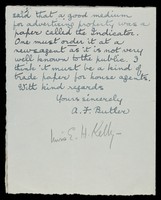 said that a good medium
for advertising property was a
paper called the Indicator.
One must order it at a
newsagent as it is not very
well known to the public. I
think it must be a kind of
trade paper for house agents.
With kind regards
Yours sincerely
A. F. Butler
Miss E. H. Kelly